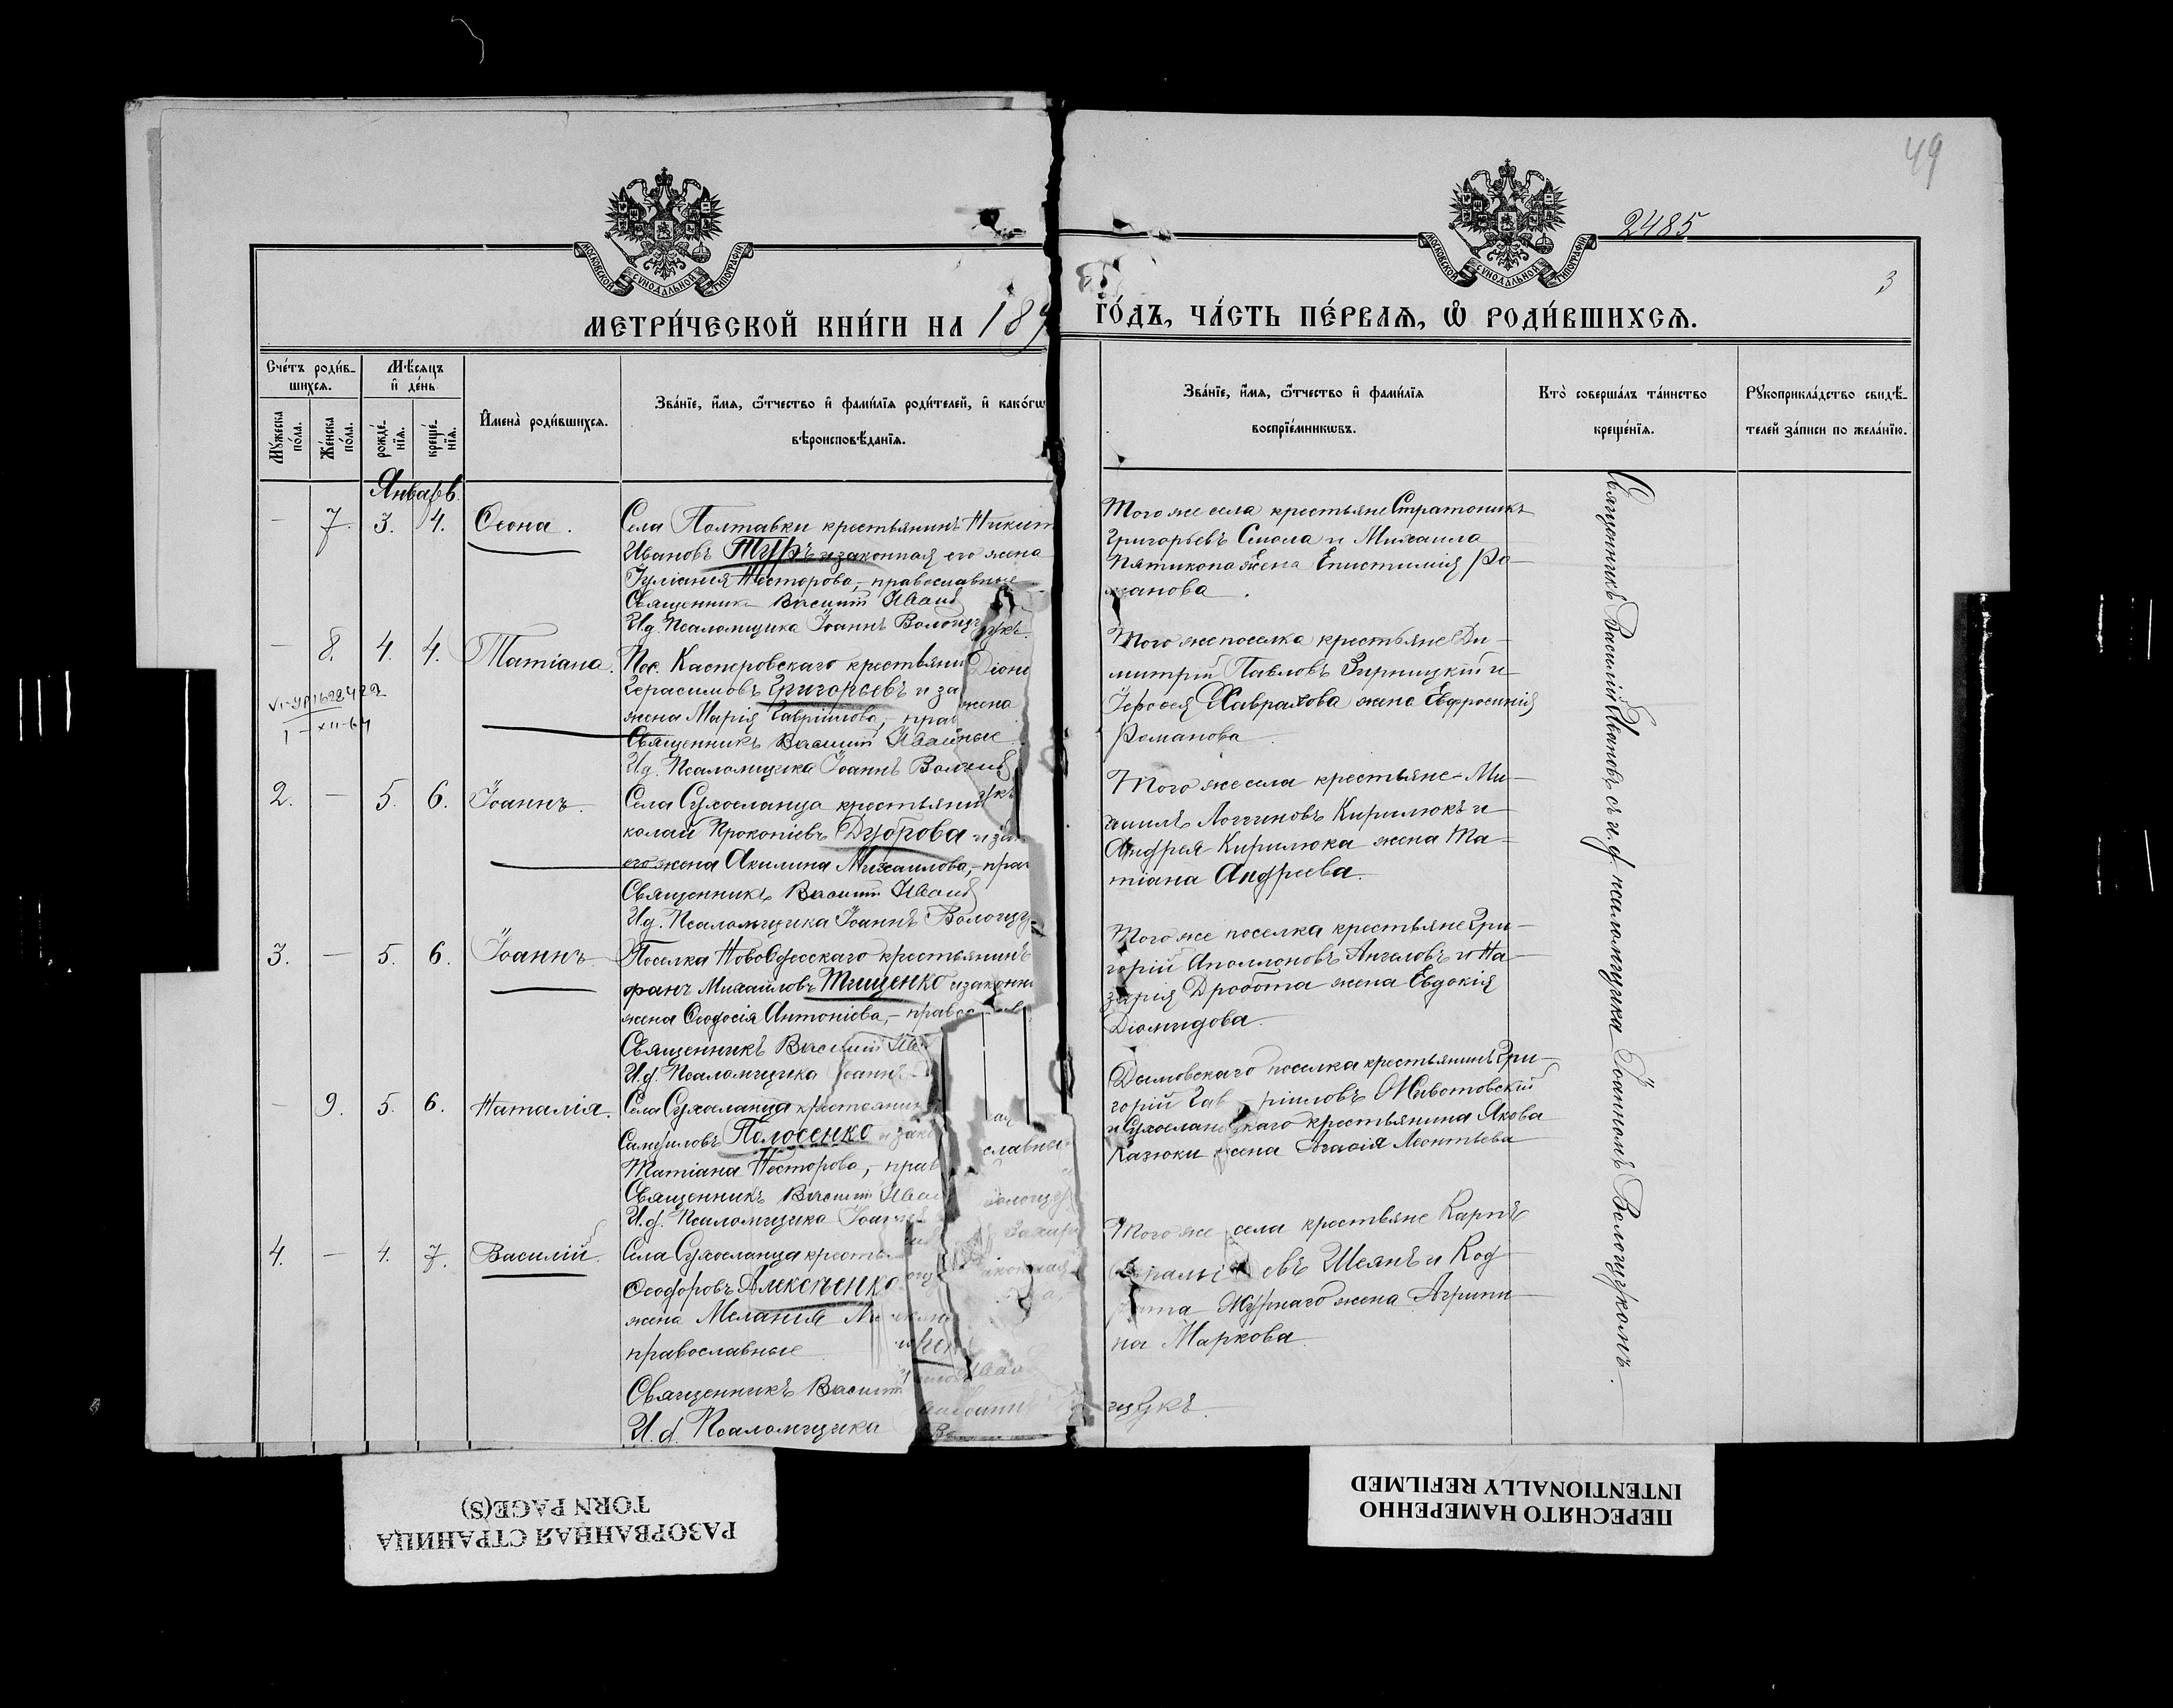 49
2485
3
МОСКОВСКОЙ СѴНОДАЛЬНОЙ ТИПОГРАФІИ
МОСКОВСКОЙ СѴНОДАЛЬНОЙ ТИПОГРАФІИ
МЕТРИ́ЧЕСКОЙ КНИ́ГИ НА 189
ГО́ДЪ, ЧА́СТЬ ПЕ́РВАѦ, Ѽ РОДИ́ВШИХСѦ.
Сче́тъ роди́в-
шихся.
Мѣ́сяцъ
и҆ де́нь
Мꙋ́жеска
по́ла.
Же́нска
по́ла.
рожде́-
нїя.
креще́-
нїя.
И҆мена̀ роди́вшихся.
Зва́нїе, и҆́мя, ѻ҆́тчество и҆ фами́лїя роди́телей, и҆ како́гѡ
вѣроисповѣ́данїя.
Зва́нїе, и҆́мя, ѻ҆́тчество и҆ фами́лїя
воспрїе́мникѡвъ.
Кто̀ соверша́лъ та́инство
креще́нїя.
Рꙋкоприкла́дство свидѣ́-
телей за́писи по жела́нїю.
Январь.
— 7. 3. 4. Ѳеона.
Села Полтавки крестьянинъ Никит
Ивановъ Туръ и законная его жена
Іуліанія Несторова, – православные
Священникъ Василій Иванов
И.д. Псаломщика Іоаннъ Вологщукъ.
Того же села крестьяне Стратоникъ
Григорьевъ Смола и Михаила
Пятикопа жена Епистимія Ро-
манова.
— 8. 4. 4. Татіана.
Пос. Касперовскаго крестьянин Діони
Герасимовъ Григорьевъ и за
жена Марія Гавріилова, – прав
Священникъ Василій Иван
И.д. Псаломщика Іоаннъ
Того же поселка крестьяне Ди-
митрій Павловъ Зирницкій и
Іероѳея Хаврахова жена Евфросинія
Романова
2. — 5. 6. Іоаннъ.
Села Сухоеланца крестьянин
колай Прокопіевъ Дуброва и зак
его жена Акилина Михаилова, – прав
Священникъ Василій Иванов
И.д. Псаломщика Іоаннъ Вологщу
Того же села крестьяне Ми-
хаилъ Логгиновъ Кирилюкъ и
Андрея Кирилюка жена Та-
тіана Андреева.
3. — 5. 6. Іоаннъ.
Поселка НовоОдесскаго крестьянинъ
фанъ Михаиловъ Тищенко и законн
жена Ѳеодосія Антоніева, – правос
Священникъ Василій Ив
И.д. Псаломщика Іоаннъ
Того же поселка крестьяне Гри-
горій Аполлоновъ Ангеловъ и На-
зарія Дробота жена Евдокія
Діомидова.
— 9. 5. 6. Наталія.
Села Сухоеланца крестьянин
Самуиловъ Полосенко и зако
Татіана Несторова, – прав славны
Священникъ Василій Иван
И.д. Псаломщика Іоаннъ
Дымовскаго поселка крестьянинъ Гри-
горій Гав-ріиловъ Животовскій
и Сухоеланецкаго крестьянина Якова
Казюки жена Агасія Леонтьева
4. — 4. 7. Василій.
Села Сухоеланца крестья
Ѳеодоровъ Алексѣенко
жена Меланія
православные
Священникъ Василій
И.д. Псаломщика
Того же села крестьяне Карпъ
евъ Шеянъ и Код
рата Журнаго жена Агрипи-
на Маркова.
щукъ.
Священникъ Василій Ивановъ съ и.д. псаломщика Іоанномъ Вологщукомъ.
РАЗОРВАННАЯ СТРАНИЦА
TORN PAGE(S)
ПЕРЕСНЯТО НАМЕРЕННО
INTENTIONALLY REFILMED